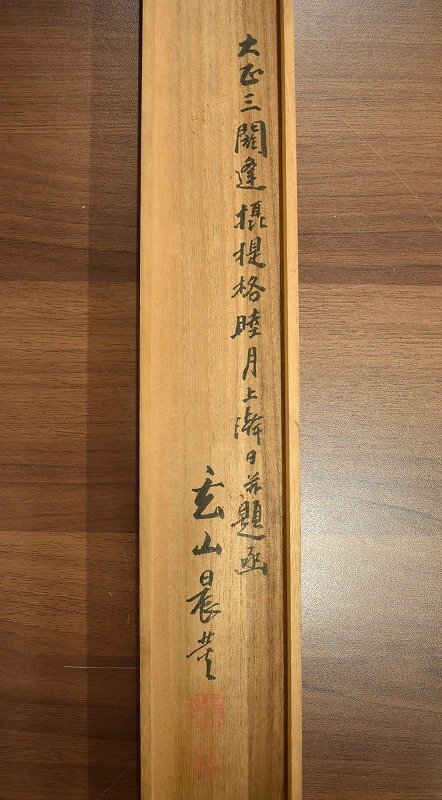 大正三閼逢摂提格睦月上澣日并題函
玄山晨埜